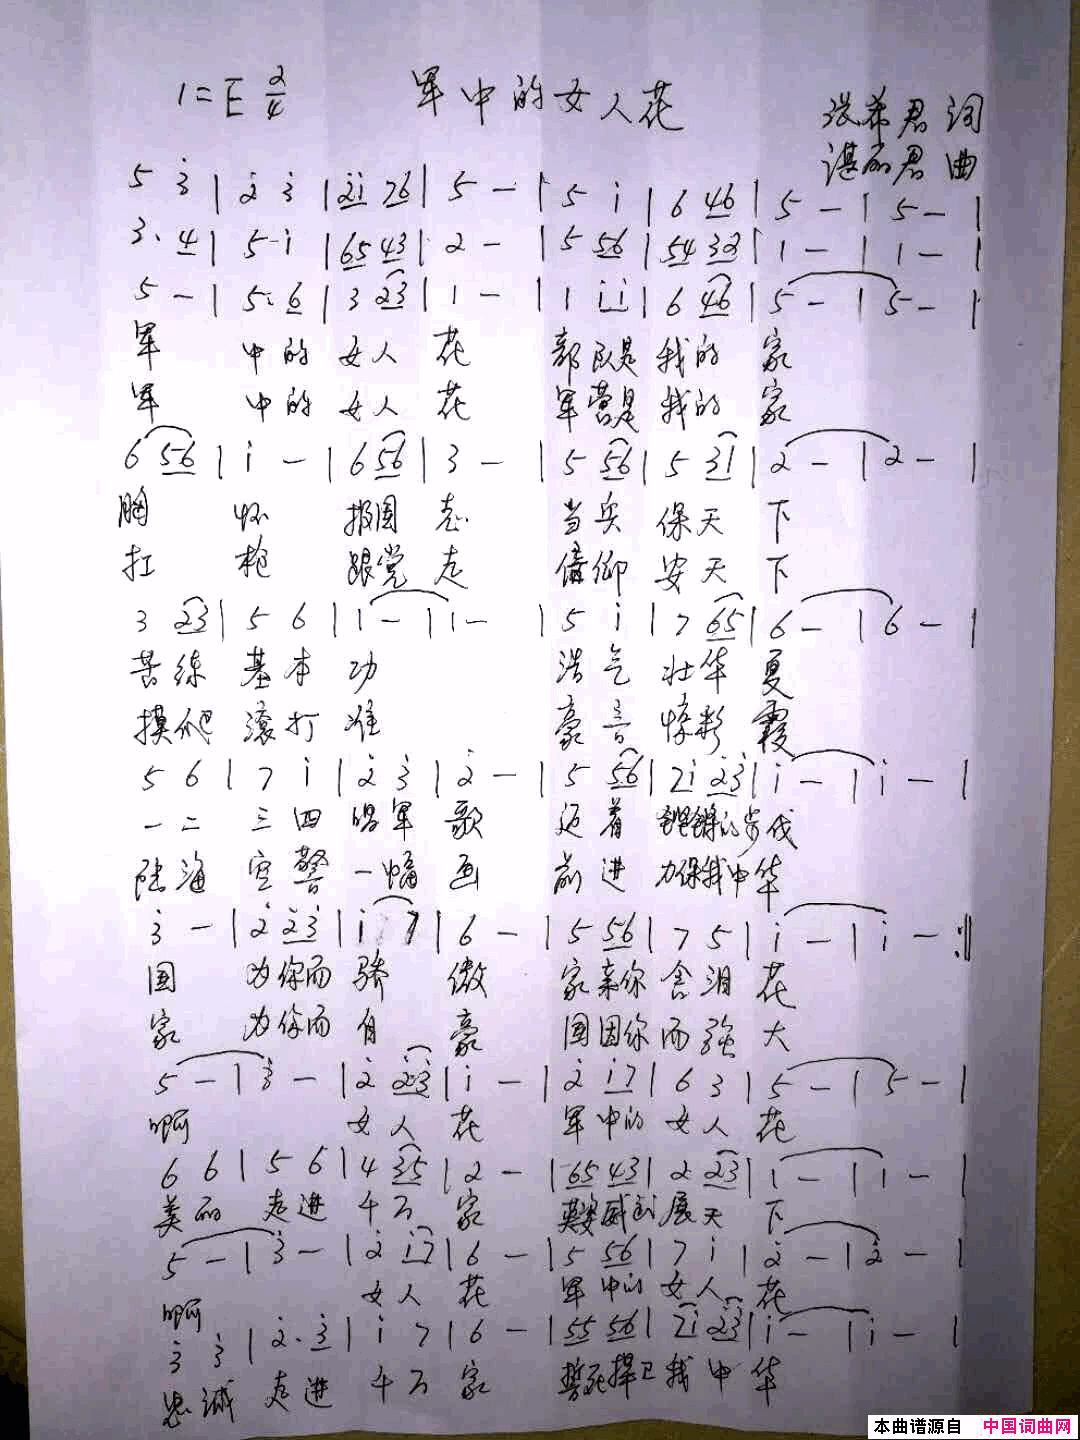 1=E 2/4 军中的女人花
张希君 词
谌丽君 曲
5 3̇ | 2̇ 3̇ | 2̇1̇ 76 | 5 — | 5 1̇ | 6 46 | 5 — | 5 — |
3. 4 | 5 · 1̇ | 65 43 | 2 — | 5 56 | 54 32 | 1 — | 1 — |
5 — | 5. 6 | 3 23 | 1 — | 1 1̇1̇ | 6 46 | 5 — | 5 — |
军 中的 女人 花 部队是 我的 家
军 中的 女人 花 军营是 我的 家
6 56 | 1̇ — | 6 56 | 3 — | 5 56 | 5 31 | 2 — | 2 — |
胸 怀 报国 志 当兵 保天 下
扛 枪 跟党 走 信仰 安天 下
3 23 | 5 6 | 1 — | 1 — | 5 1̇ | 7 65 | 6 — | 6 — |
苦练 基本 功 浩气 壮华 夏
摸爬 滚打 准 豪言 惊彩 霞
5 6 | 7 1̇ | 2̇ 3̇ | 2̇ — | 5 56 | 71̇ 2̇3̇ | 1̇ — | 1̇ — |
一二 三四 唱军 歌 迈着 铿锵的步伐
陆海 空警 一幅 画 前进 力保我中华
3̇ — | 2̇ 2̇3̇ | 1̇ 7 | 6 — | 5 56 | 7 5 | 1̇ — | 1̇ — :‖
国 为你而 骄 傲 家亲你 含泪 花
家 为你而 自 豪 国因你 而强 大
5 — | 3̇ — | 2̇ 2̇3̇ | 1̇ — | 2̇ 1̇7 | 6 3 | 5 — | 5 — |
啊 女人 花 军中的 女人 花
6 6 | 5 6 | 4 35 | 2 — | 65 43 | 2 23 | 1 — | 1 — |
美丽 走进 千万 家 英姿威武 展天 下
5 — | 3̇ — | 2̇ 1̇7 | 6 — | 5 56 | 7 1̇ | 2̇ — | 2̇ — |
啊 女人 花 军中的 女人 花
3̇ 3̇ | 2̇. 3̇ | 1̇ 7 | 6 — | 55 56 | 71̇ 2̇3̇ | 1̇ — | 1̇ — |
忠诚 走进 千万 家 誓死捍卫 我中 华
本曲谱源自 中国词曲网